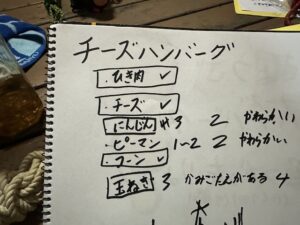 チーズハンバーグ
・ひき肉 ✓
・チーズ ✓
にんじん 3 2 やわらかい
・ピーマン 1~2 2 やわらかい
コーン ✓
玉ねぎ 3 かみごたえがある 4